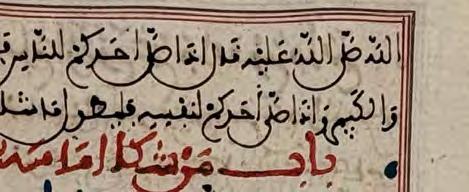 اللّه صلّى اللّه عَليْه قال اذا صلّى احَدكمْ للنّاس
وَالكَبِيرَ وَاذا صلّى أحَدكمْ لنفسِه فليطول ما شا
باب مَن شكا امامه